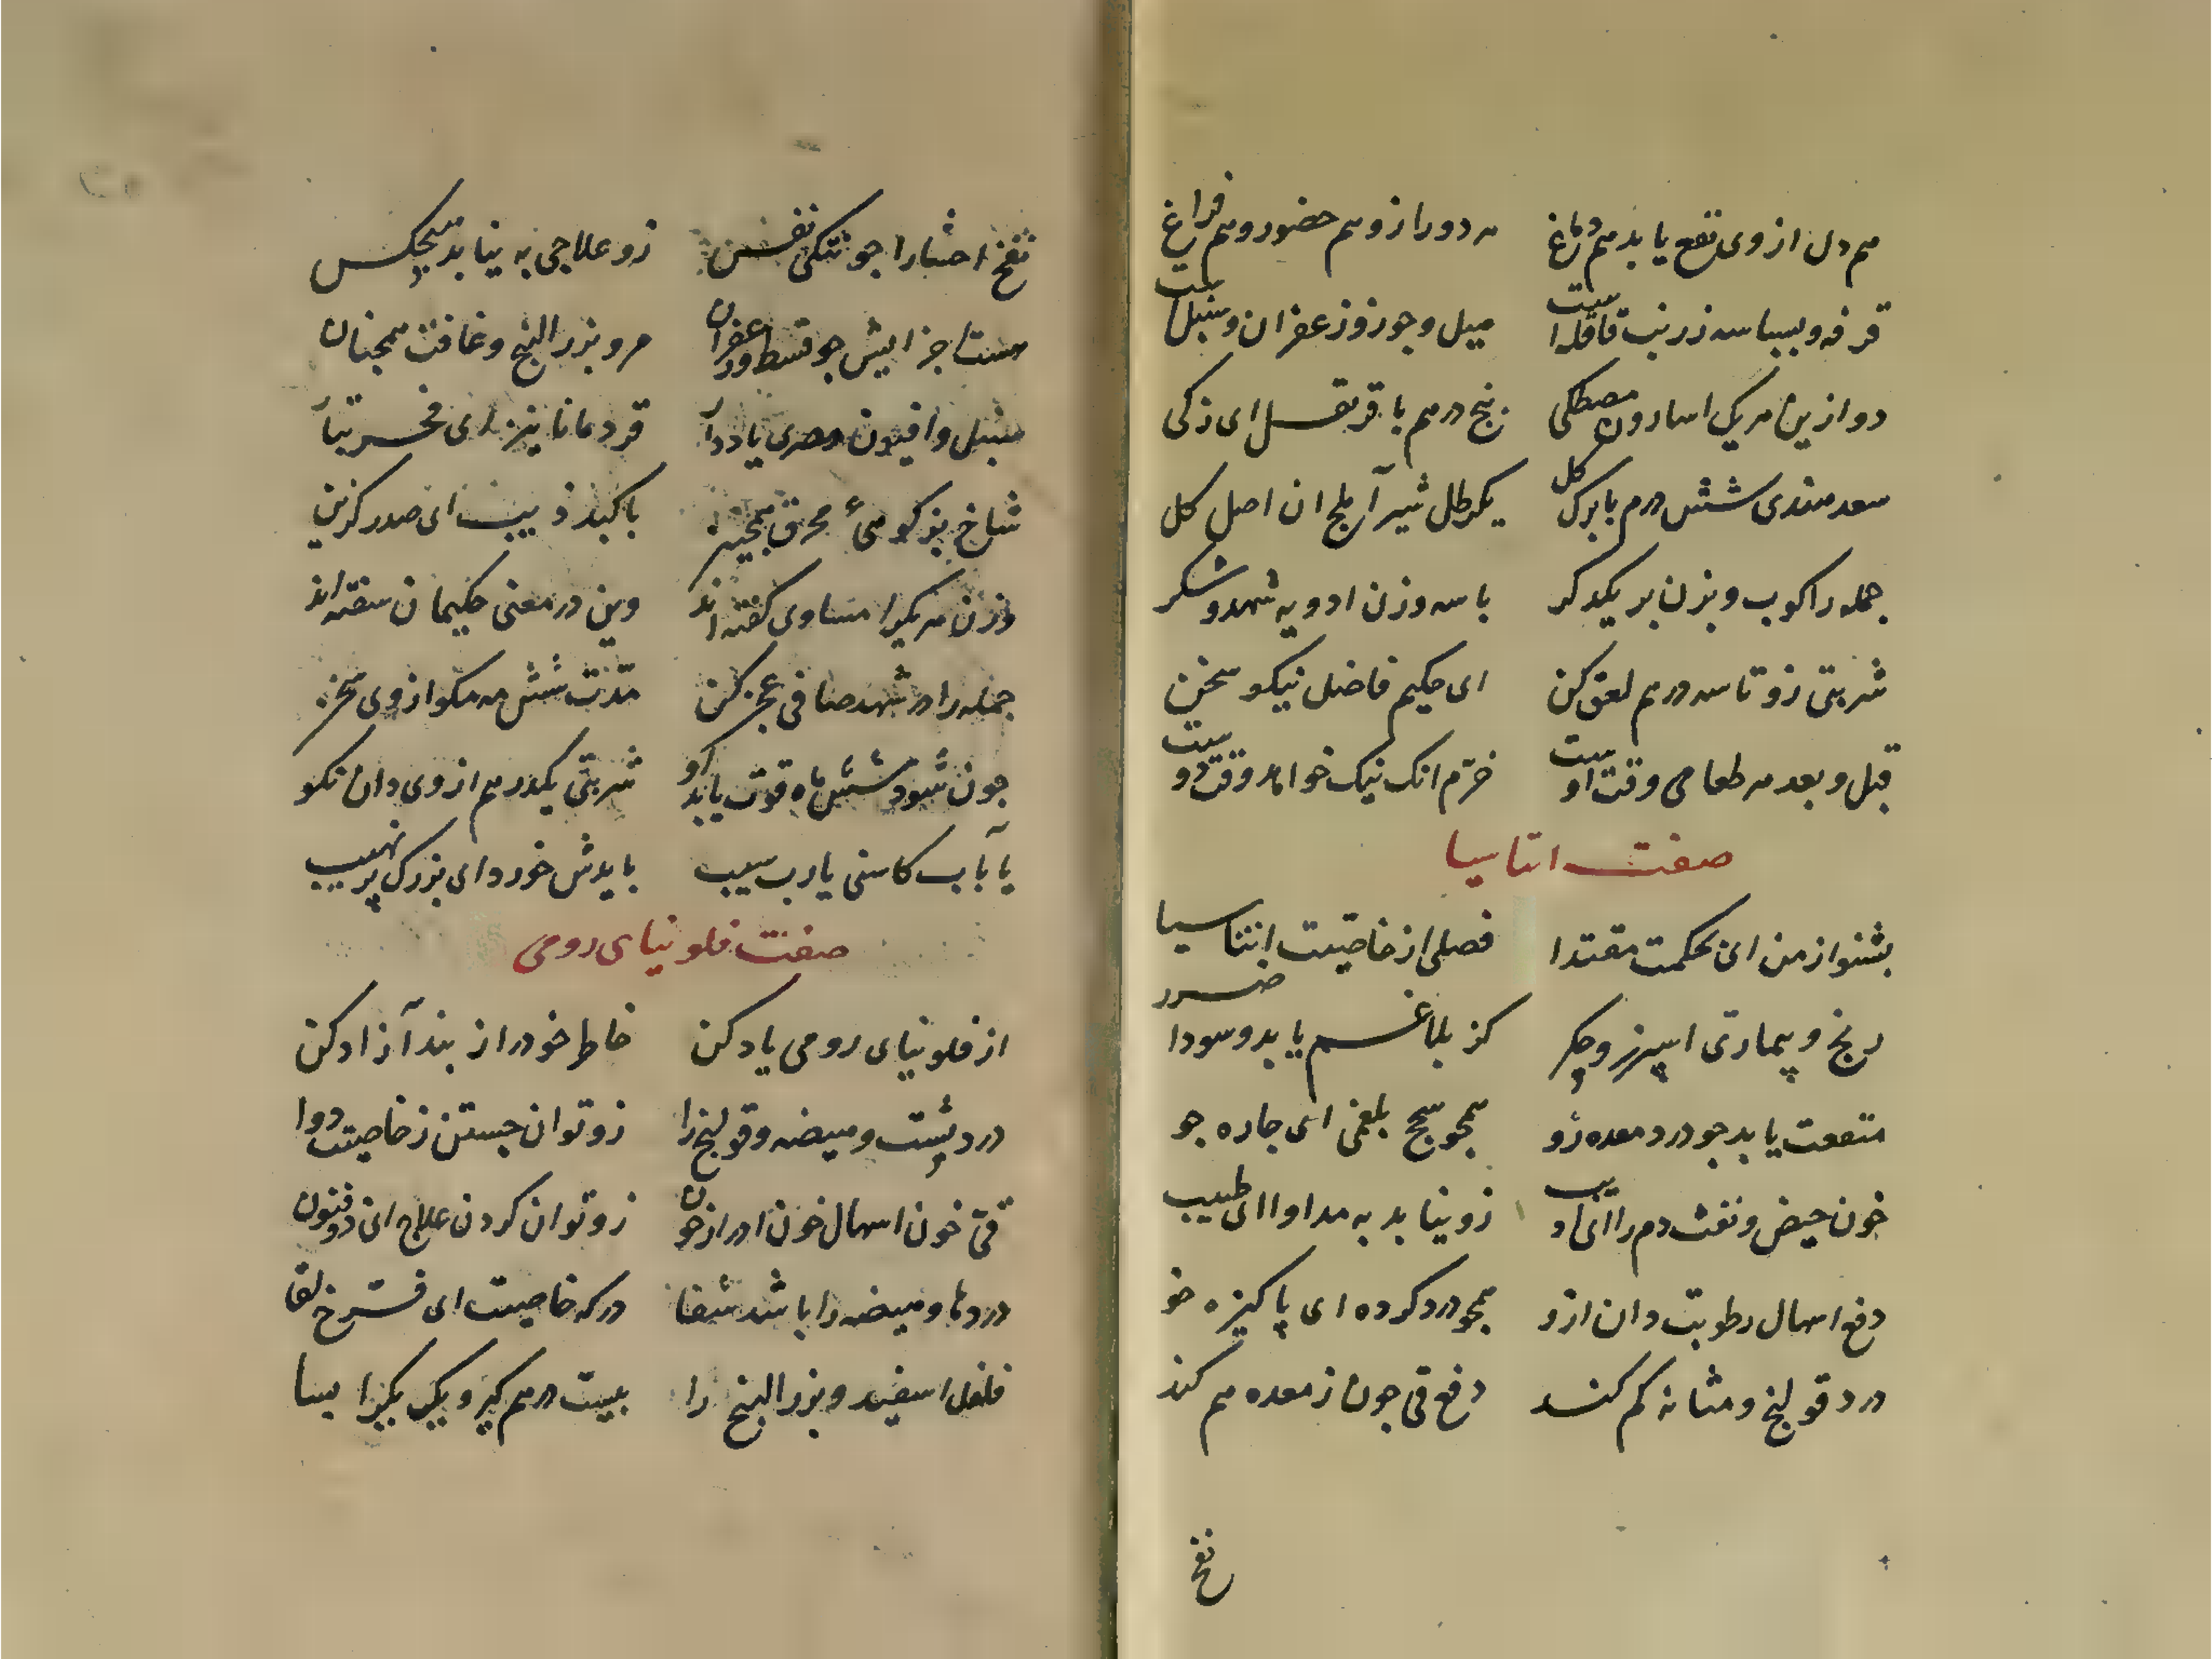 هم دل از وی نفع یابد هم دماغ هر دو را زو هم حضور و هم فراغ
قرفه و بسباسه زرنب قاقله است هیل و جوز و زعفران و سنبل است
دو ازین هر یک اسارون مصطکی پنج درهم با قرنفل ای زکی
سعد هندی شش درم با برک کل یکرطل شیر آملج ان اصل کل
جمله را کوب و بزن بر یکدکر با سه وزن ادویه شهد و شکر
شربتی زو تا سه درهم لعق کن ای حکیم فاضل نیکو سخن
قبل و بعد هر طعامی وقت اوست خرم انک نیک خواه وقت دوست
صفت اتاسیا
بشنو از من ای بحکمت مقتدا فصلی از خاصیت اتناسیا
رنج و پیماری اسپرز و جکر کز بلاغم یابد و سودا ضرر
منفعت یابد جو درد معده زو همجو سحج بلغمی ای جاره جو
خون حیض و نفث دم را ای ادیب زو نیابد به مداوا ای طبیب
دفع اسهال رطوبت دان ازو همجو درد کرده ای پاکیزه خو
درد قولنج و مثانه کم کند دفع قی جون ز معده هم کند
نفخ
نفخ احشا را جو تنکی نفس زو علاجی به نیابد هیجکس
هست اجزایش جو قسط و زعفران مر و بزر البنج و غافت همجنان
سنبل و افیون مصری یاد دار قردمانا نیز ای فخر تبار
شاخ بز کوهی محرق همجنین با کبد ذیب ای صدر کزین
وزن هر یکرا مساوی کفته اند وین در معنی حکیمان سفته اند
جمله را در شهد صافی عجن کن مدت شش مه مکو از وی سخن
جون شود شش ماه قوت یابد او شربتی یکدرهم از وی دان نکو
یا بآب کاسنی یا رب سیب بایدش خورد ای بزرک پر نهیب
صفت فلونیای رومی
از فلونیای رومی یاد کن خاطر خود را ز بند آزاد کن
درد پشت و هیضه و قولنج را زو توان جستن ز خاصیت دوا
قی خون اسهال خون ادرار خون زو توان کردن علاج ای ذوفنون
دردها و هیضه را باشد شفا در که خاصیت ای فرخ لقا
فلفل اسفید و بزر البنج را بیست درهم کیر و یک یکرا بسا